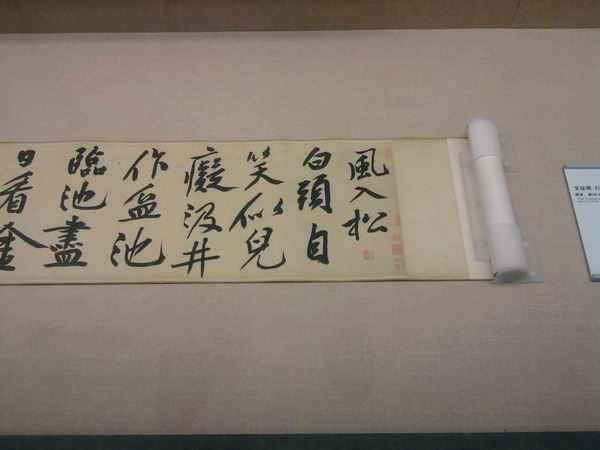 風入松
白頭自
笑似兒
癡汲井
作盆池
臨池盡
日看金